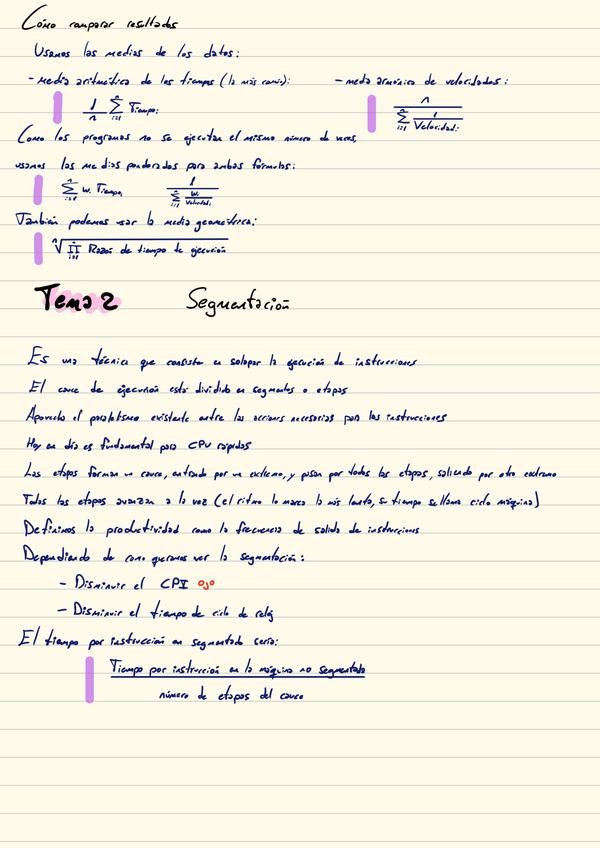 Cómo comparar resultados
Usamos las medias de los datos:
- media aritmética de los tiempos (la más común): - media armónica de velocidades:
1/n ∑ⁿᵢ₌₁ Tiempoᵢ n / ∑ⁿᵢ₌₁ 1/Velocidadᵢ
Como los programas no se ejecutan el mismo número de veces,
usamos las medias ponderadas para ambas fórmulas:
∑ⁿᵢ₌₁ wᵢ Tiempoᵢ 1 / ∑ⁿᵢ₌₁ wᵢ/Velocidadᵢ
También podemos usar la media geométrica:
ⁿ√∏ⁿᵢ₌₁ Razón de tiempo de ejecución
Tema 2 Segmentación
Es una técnica que consiste en solapar la ejecución de instrucciones
El cauce de ejecución está dividido en segmentos o etapas
Aprovecha el paralelismo existente entre las acciones necesarias para las instrucciones
Hoy en día es fundamental para CPU rápidas
Las etapas forman un cauce, entrando por un extremo, y pasan por todas las etapas, saliendo por otro extremo
Todas las etapas avanzan a la vez (el ritmo lo marca la más lenta, su tiempo se llama ciclo máquina)
Definimos la productividad como la frecuencia de salida de instrucciones
Dependiendo de como queramos ver la segmentación:
- Disminuir el CPI ojo
- Disminuir el tiempo de ciclo de reloj
El tiempo por instrucción en segmentado sería:
Tiempo por instrucción en la máquina no segmentada
número de etapas del cauce